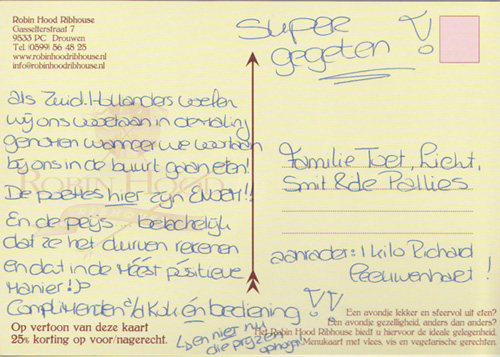 Robin Hood Ribhouse
Gasselterstraat 7
9533 PC Drouwen
Tel. (0599) 56 48 25
www.robinhoodribhouse.nl
info@robinhoodribhouse.nl
SUPER
gegeten!
als Zuid-Hollanders voelen
wij ons voortaan in de maling
genomen wanneer we voortaan
bij ons in de buurt gaan eten!
De porties hier zijn ENORM!!
En de prijs belachelijk
dat ze het durven rekenen
en dat in de MÉÉST positieve
Manier!
Complimenten a/d Kok én bediening!!
↳ en niet nu
die prijzen
ophogen!
Familie Toet, Licht,
Smit & de Pallies
aanrader: 1 kilo Richard
Leeuwenhart!
ROBIN HOOD
Op vertoon van deze kaart
25% korting op voor/nagerecht.
Een avondje lekker en sfeervol uit eten?
Een avondje gezelligheid, anders dan anders?
Het Robin Hood Ribhouse biedt u hiervoor de ideale gelegenheid.
Menukaart met vlees, vis en vegetarische gerechten